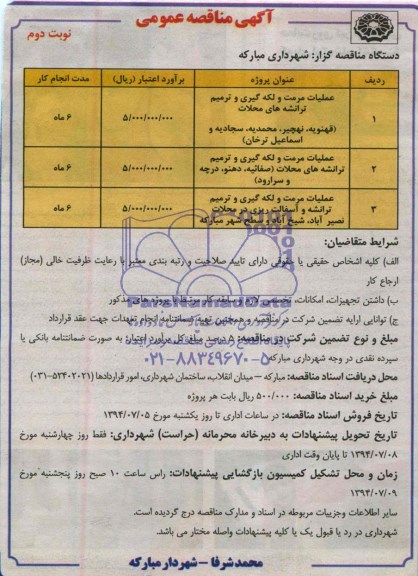 آگهی مناقصه عمومی
نوبت دوم
دستگاه مناقصه گزار: شهرداری مبارکه
ردیف عنوان پروژه برآورد اعتبار (ریال) مدت انجام کار
۱ عملیات مرمت و لکه گیری و ترمیم ۵/۰۰۰/۰۰۰/۰۰۰ ۶ ماه
ترانشه های محلات
(قهنویه، نهچیر، محمدیه، سجادیه و
اسماعیل ترخان)
۲ عملیات مرمت و لکه گیری و ترمیم ۵/۰۰۰/۰۰۰/۰۰۰ ۶ ماه
ترانشه های محلات (صفائیه، دهنو، درچه
و سرارود)
۳ عملیات مرمت و لکه گیری و ترمیم ۵/۰۰۰/۰۰۰/۰۰۰ ۶ ماه
ترانشه و آسفالت ریزی در محلات
نصیر آباد، شیخ آباد و سطح شهر مبارکه
شرایط متقاضیان:
الف) کلیه اشخاص حقیقی یا حقوقی دارای تایید صلاحیت و رتبه بندی معتبر با رعایت ظرفیت خالی (مجاز)
ارجاع کار
ب) داشتن تجهیزات، امکانات، تخصص لازم و سابقه کار مرتبط با پروژه های مذکور
ج) توانایی ارایه تضمین شرکت در مناقصه و همچنین تهیه ضمانتنامه انجام تعهدات جهت عقد قرارداد
مبلغ و نوع تضمین شرکت در مناقصه: ۵ درصد مبلغ کل برآورد اعتبار به صورت ضمانتنامه بانکی یا
سپرده نقدی در وجه شهرداری مبارکه
محل دریافت اسناد مناقصه: مبارکه – میدان انقلاب، ساختمان شهرداری، امور قراردادها (۵۲۴۰۲۰۲۱-۰۳۱)
مبلغ خرید اسناد مناقصه: ۵۰۰/۰۰۰ ریال بابت هر پروژه
تاریخ فروش اسناد مناقصه: در ساعات اداری تا روز یکشنبه مورخ ۱۳۹۴/۰۷/۰۵
تاریخ تحویل پیشنهادات به دبیرخانه محرمانه (حراست) شهرداری: فقط روز چهارشنبه مورخ
۱۳۹۴/۰۷/۰۸ تا پایان وقت اداری
زمان و محل تشکیل کمیسیون بازگشایی پیشنهادات: راس ساعت ۱۰ صبح روز پنجشنبه مورخ
۱۳۹۴/۰۷/۰۹
سایر اطلاعات وجزییات مربوطه در اسناد و مدارک مناقصه درج گردیده است.
شهرداری در رد یا قبول یک یا کلیه پیشنهادات واصله مختار می باشد.
محمد شرفا – شهردار مبارکه
ParsNamadData
۰۲۱-۸۸۳۴۹۶۷۰-۵